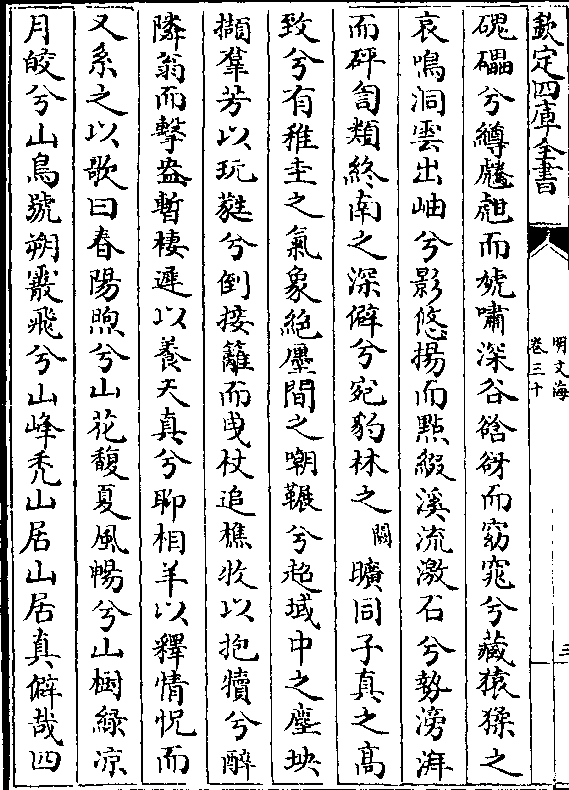 欽定四庫全書
明文海
卷三十
三
磈礧兮鱒鼪𪕍而虓嘯深谷谽谺而窈窕兮藏猿猱之
哀鳴洞雲出岫兮影悠揚而㸃綴溪流激石兮勢滂湃
而砰訇類終南之深僻兮宛豹林之闗曠同子真之高
致兮有稚圭之氣象絶㕓間之嘲囀兮超域中之塵坱
擷羣芳以玩蕤兮倒接籬而曵杖追樵牧以抱犢兮醉
隣翁而擊盎暫棲遲以養天真兮聊相羊以釋情怳而
又系之以歌曰春陽煦兮山花馥夏風暢兮山樹緑凉
月皎兮山鳥號朔霰飛兮山峰秃山居山居真僻哉四